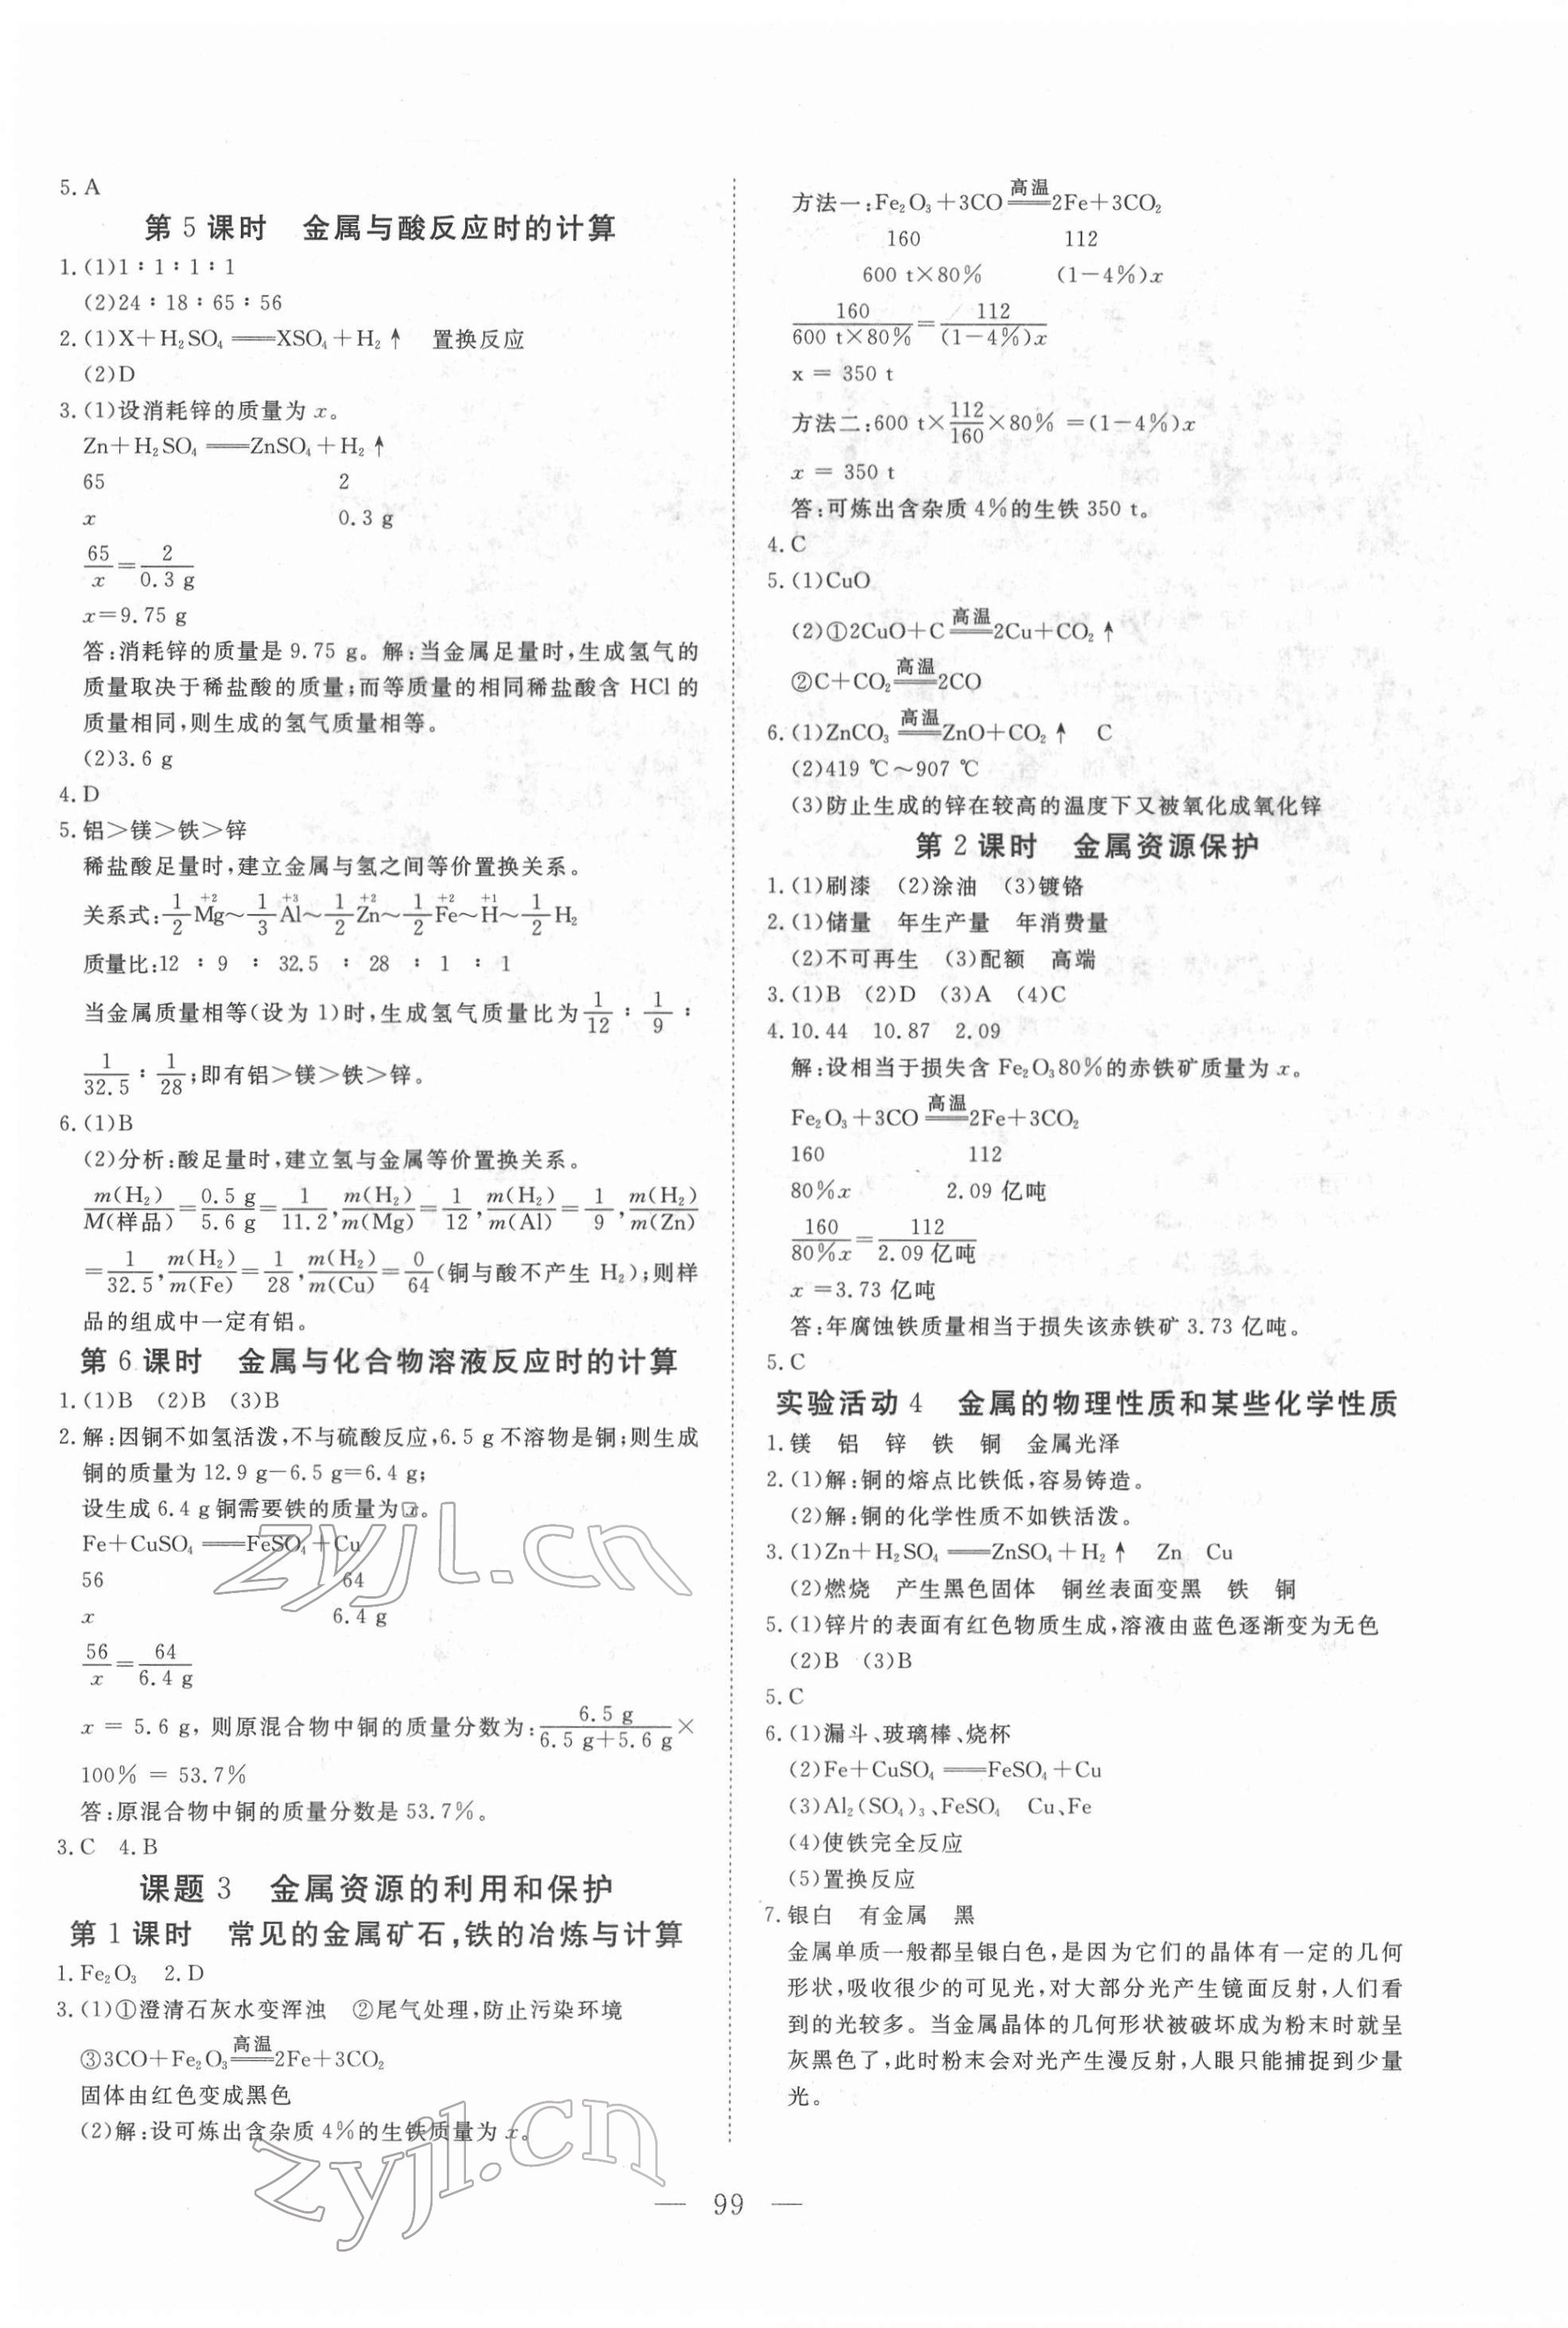 5. A
第 5 课时　金属与酸反应时的计算
1. (1)1∶1∶1∶1
(2)24∶18∶65∶56
2. (1)X+H₂SO₄══XSO₄+H₂↑　置换反应
(2)D
3. (1)设消耗锌的质量为 x。
Zn+H₂SO₄══ZnSO₄+H₂↑
65　2
x　0.3 g
65/x=2/0.3 g
x=9.75 g
答:消耗锌的质量是 9.75 g。解:当金属足量时,生成氢气的
质量取决于稀盐酸的质量;而等质量的相同稀盐酸含 HCl 的
质量相同,则生成的氢气质量相等。
(2)3.6 g
4. D
5. 铝>镁>铁>锌
稀盐酸足量时,建立金属与氢之间等价置换关系。
关系式:1/2 Mg(+2)~1/3 Al(+3)~1/2 Zn(+2)~1/2 Fe(+2)~H(+1)~1/2 H₂
质量比:12 ∶ 9 ∶ 32.5 ∶ 28 ∶ 1 ∶ 1
当金属质量相等(设为 1)时,生成氢气质量比为 1/12 ∶ 1/9 ∶
1/32.5 ∶ 1/28;即有铝>镁>铁>锌。
6. (1)B
(2)分析:酸足量时,建立氢与金属等价置换关系。
m(H₂)/M(样品)=0.5 g/5.6 g=1/11.2,m(H₂)/m(Mg)=1/12,m(H₂)/m(Al)=1/9,m(H₂)/m(Zn)
=1/32.5,m(H₂)/m(Fe)=1/28,m(H₂)/m(Cu)=0/64(铜与酸不产生 H₂);则样
品的组成中一定有铝。
第 6 课时　金属与化合物溶液反应时的计算
1. (1)B　(2)B　(3)B
2. 解:因铜不如氢活泼,不与硫酸反应,6.5 g 不溶物是铜;则生成
铜的质量为 12.9 g-6.5 g=6.4 g;
设生成 6.4 g 铜需要铁的质量为 x。
Fe+CuSO₄══FeSO₄+Cu
56　64
x　6.4 g
56/x=64/6.4 g
x = 5.6 g, 则原混合物中铜的质量分数为:6.5 g/(6.5 g+5.6 g)×
100% = 53.7%
答:原混合物中铜的质量分数是 53.7%。
3. C　4. B
课题 3　金属资源的利用和保护
第 1 课时　常见的金属矿石,铁的冶炼与计算
1. Fe₂O₃　2. D
3. (1)①澄清石灰水变浑浊　②尾气处理,防止污染环境
③3CO+Fe₂O₃ ══(高温) 2Fe+3CO₂
固体由红色变成黑色
(2)解:设可炼出含杂质 4%的生铁质量为 x。
方法一:Fe₂O₃+3CO ══(高温) 2Fe+3CO₂
160　112
600 t×80%　(1-4%)x
160/(600 t×80%)=112/((1-4%)x)
x = 350 t
方法二:600 t×112/160×80% =(1-4%)x
x = 350 t
答:可炼出含杂质 4%的生铁 350 t。
4. C
5. (1)CuO
(2)①2CuO+C ══(高温) 2Cu+CO₂↑
②C+CO₂ ══(高温) 2CO
6. (1)ZnCO₃ ══(高温) ZnO+CO₂↑　C
(2)419 ℃~907 ℃
(3)防止生成的锌在较高的温度下又被氧化成氧化锌
第 2 课时　金属资源保护
1. (1)刷漆　(2)涂油　(3)镀铬
2. (1)储量　年生产量　年消费量
(2)不可再生　(3)配额　高端
3. (1)B　(2)D　(3)A　(4)C
4. 10.44　10.87　2.09
解:设相当于损失含 Fe₂O₃80%的赤铁矿质量为 x。
Fe₂O₃+3CO ══(高温) 2Fe+3CO₂
160　112
80%x　2.09 亿吨
160/80%x=112/2.09 亿吨
x =3.73 亿吨
答:年腐蚀铁质量相当于损失该赤铁矿 3.73 亿吨。
5. C
实验活动 4　金属的物理性质和某些化学性质
1. 镁　铝　锌　铁　铜　金属光泽
2. (1)解:铜的熔点比铁低,容易铸造。
(2)解:铜的化学性质不如铁活泼。
3. (1)Zn+H₂SO₄══ZnSO₄+H₂↑　Zn　Cu
(2)燃烧　产生黑色固体　铜丝表面变黑　铁　铜
5. (1)锌片的表面有红色物质生成,溶液由蓝色逐渐变为无色
(2)B　(3)B
5. C
6. (1)漏斗、玻璃棒、烧杯
(2)Fe+CuSO₄══FeSO₄+Cu
(3)Al₂(SO₄)₃、FeSO₄　Cu、Fe
(4)使铁完全反应
(5)置换反应
7. 银白　有金属　黑
金属单质一般都呈银白色,是因为它们的晶体有一定的几何
形状,吸收很少的可见光,对大部分光产生镜面反射,人们看
到的光较多。当金属晶体的几何形状被破坏成为粉末时就呈
灰黑色了,此时粉末会对光产生漫反射,人眼只能捕捉到少量
光。
— 99 —
zyjl.cn
zyjl.cn